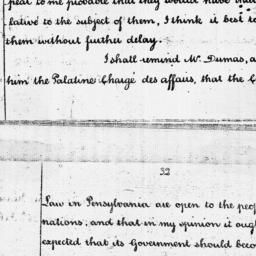 pear to me probable that they would have
lative to the subject of them, I think it best to
them without further delay.
I shall remind Mr. Dumas, a
him the Palatine Chargé des affairs, that the C
32
Law in Pensylvania are open to the peop
nations; and that in my opinion it oug
expected that its Government should beco